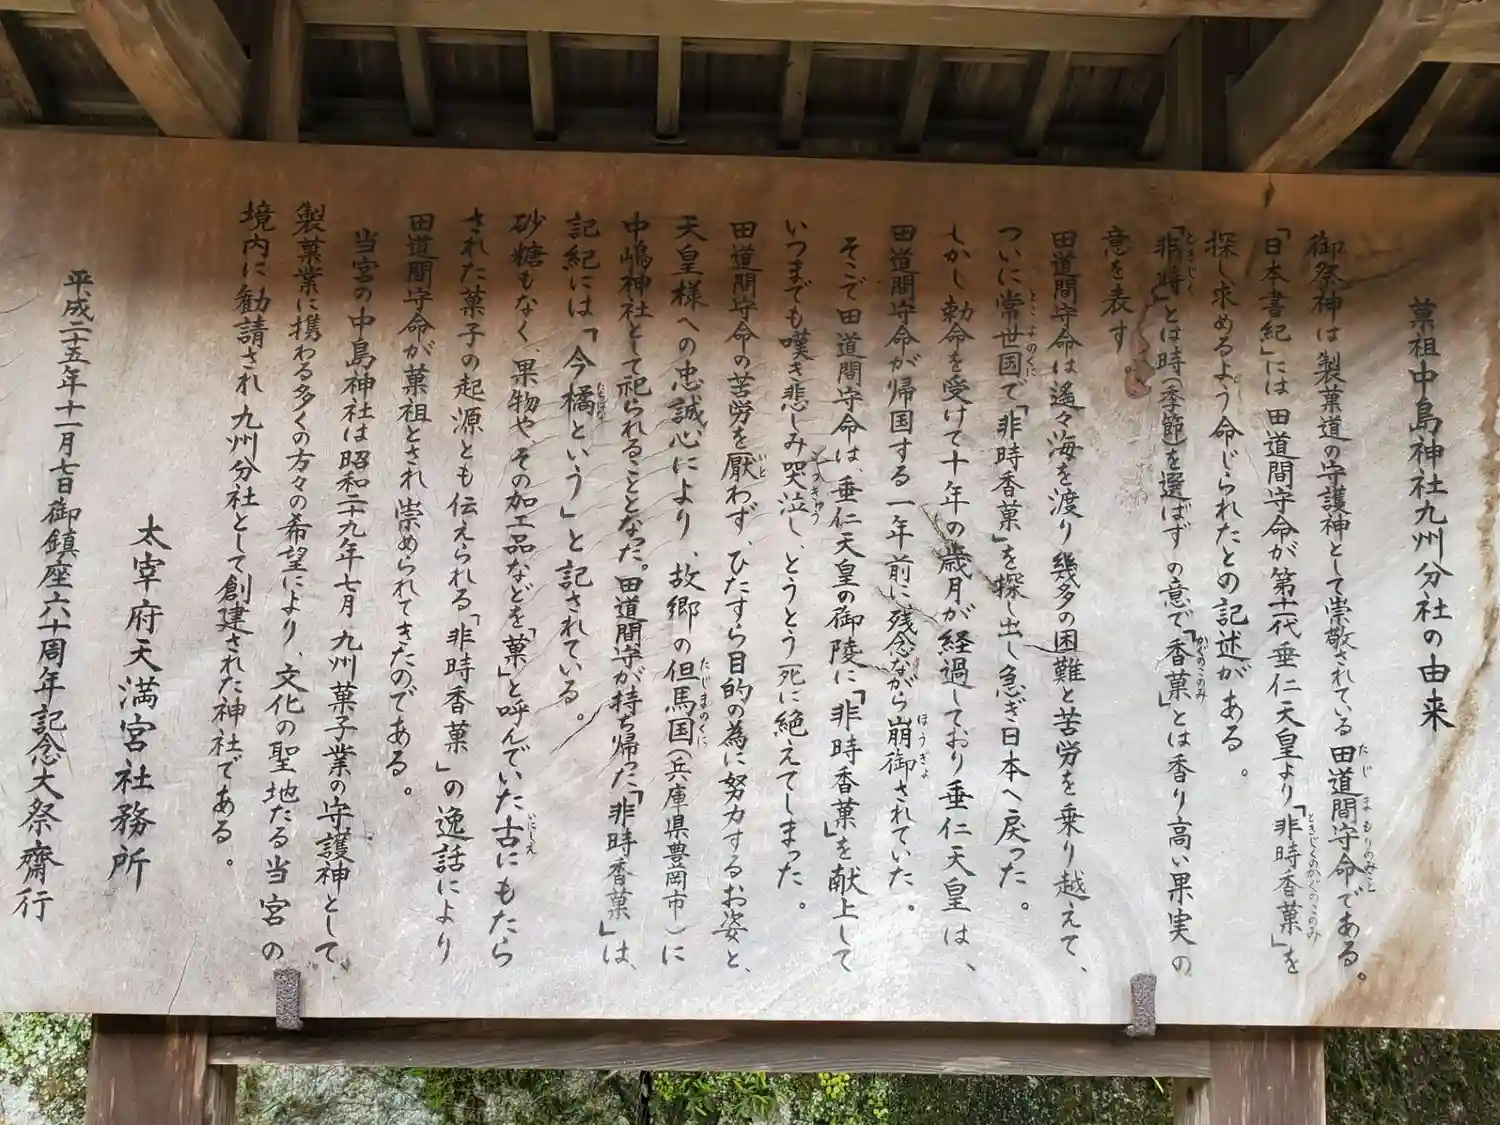 菓祖中島神社九州分社の由来
御祭神は製菓道の守護神として崇敬されている田道間守命である。
「日本書紀」には田道間守命が第十一代垂仁天皇より「非時香菓」を
探し求めるよう命じられたとの記述がある。
「非時」とは時(季節)を選ばずの意で「香菓」とは香り高い果実の
意を表す。
田道間守命は遙々海を渡り幾多の困難と苦労を乗り越えて、
ついに常世国で「非時香菓」を探し出し急ぎ日本へ戻った。
しかし勅命を受けて十年の歳月が経過しており垂仁天皇は、
田道間守命が帰国する一年前に残念ながら崩御されていた。
そこで田道間守命は、垂仁天皇の御陵に「非時香菓」を献上して
いつまでも嘆き悲しみ哭泣し、とうとう死に絶えてしまった。
田道間守命の苦労を厭わず、ひたすら目的の為に努力するお姿と、
天皇様への忠誠心により、故郷の但馬国(兵庫県豊岡市)に
中嶋神社として祀られることとなった。田道間守が持ち帰った「非時香菓」は、
記紀には「今橘という」と記されている。
砂糖もなく、果物や、その加工品などを「菓」と呼んでいた古にもたら
された菓子の起源とも伝えられる「非時香菓」の逸話により
田道間守命が菓祖とされ崇められてきたのである。
当宮の中島神社は昭和二十九年七月九州菓子業の守護神として
製菓業に携わる多くの方々の希望により、文化の聖地たる当宮の
境内に勧請され九州分社として創建された神社である。
太宰府天満宮社務所
平成二十五年十一月七日御鎮座六十周年記念大祭齋行